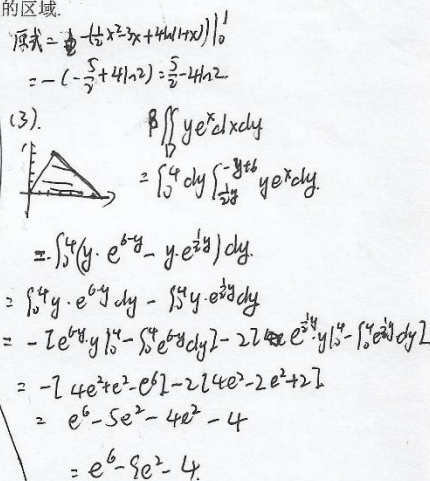 的区域.
原式 = -(½x²-3x+4ln(1+x))|₀¹
= -(-5/2+4ln2) = 5/2-4ln2
(3). ∬_D ye^x dxdy
= ∫₀⁴ dy ∫_{½y}^{-y+6} ye^x dy.
= ∫₀⁴ (y·e^{6-y} - y·e^{½y}) dy.
= ∫₀⁴ y·e^{6-y} dy - ∫₀⁴ y·e^{½y} dy
= -[e^{6-y}·y|₀⁴ - ∫₀⁴ e^{6-y} dy] - 2[e^{½y}·y|₀⁴ - ∫₀⁴ e^{½y} dy]
= -[4e²+e²-e⁶] - 2[4e²-2e²+2]
= e⁶-5e²-4e²-4
= e⁶-9e²-4.